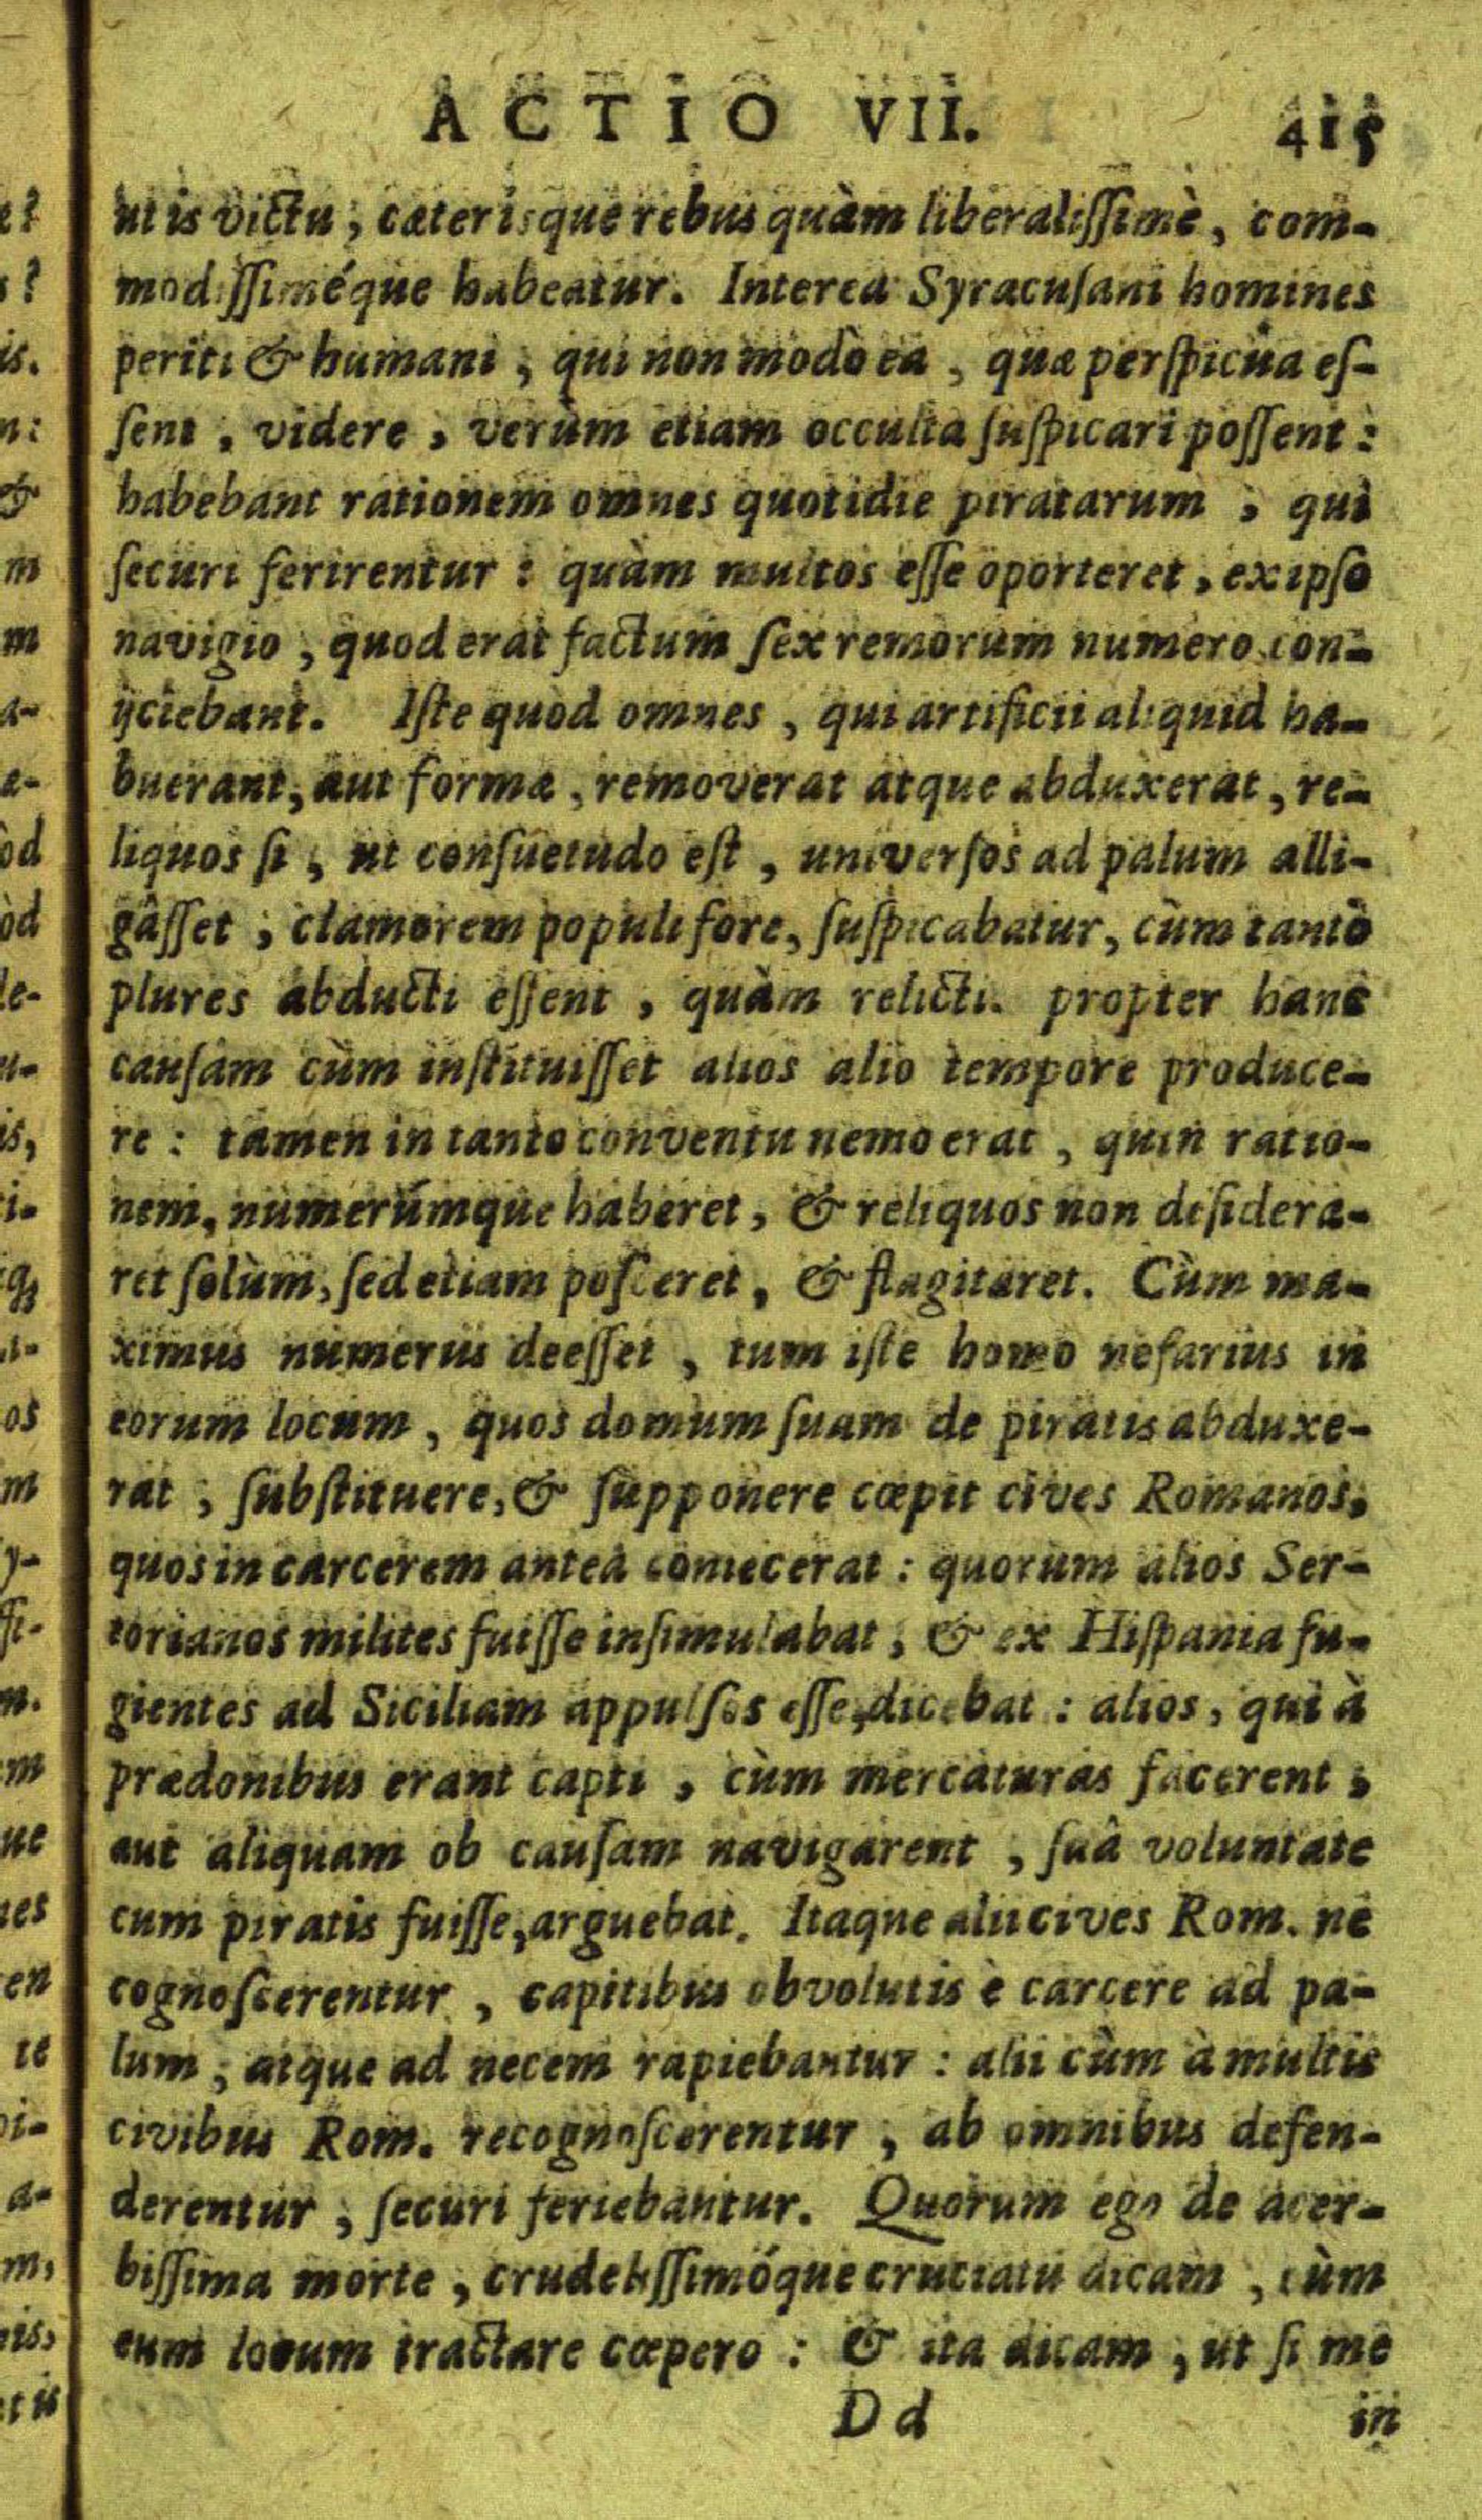 ACTIO VII. 415
ut is victu, cæterisque rebus quàm liberalissimè, com-
modissiméque habeatur. Interea Syracusani homines
periti & humani, qui non modò ea, quæ perspicua es-
sent, videre, verùm etiam occulta suspicari possent:
habebant rationem omnes quotidie piratarum, qui
securi ferirentur: quàm multos esse oporteret, ex ipso
navigio, quod erat factum sex remorum numero con-
ijciebant. Iste quòd omnes, qui artificii aliquid ha-
buerant, aut formæ, removerat atque abduxerat, re-
liquos si, ut consuetudo est, universos ad palum alli-
gâsset; clamorem populi fore, suspicabatur, cùm tantò
plures abducti essent, quàm relicti. propter hanc
causam cùm instituisset alios alio tempore produce-
re: tamen in tanto conventu nemo erat, quin ratio-
nem, numerúmque haberet, & reliquos non desidera-
ret solùm, sed etiam posceret, & flagitaret. Cùm ma-
ximus numerus deesset, tum iste homo nefarius in
eorum locum, quos domum suam de piratis abduxe-
rat, substituere, & supponere cœpit cives Romanos,
quos in carcerem anteà coniecerat: quorum alios Ser-
torianos milites fuisse insimulabat, & ex Hispania fu-
gientes ad Siciliam appulsos esse, dicebat: alios, qui à
prædonibus erant capti, cùm mercaturas facerent,
aut aliquam ob causam navigarent, suâ voluntate
cum piratis fuisse, arguebat. Itaque alii cives Rom. ne
cognoscerentur, capitibus obvolutis è carcere ad pa-
lum, atque ad necem rapiebantur: alii cùm à multis
civibus Rom. recognoscerentur, ab omnibus defen-
derentur, securi feriebantur. Quorum ego de acer-
bissima morte, crudelissimóque cruciatu dicam, cùm
eum locum tractare cœpero: & ita dicam, ut si me
Dd in